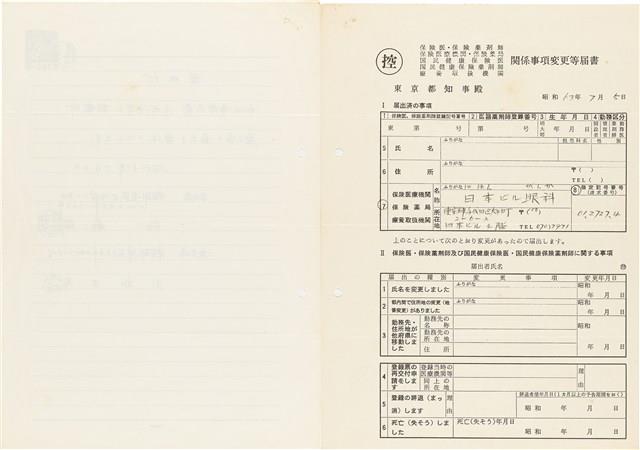 控
保険医・保険薬剤師
保険医療機関・保険薬局
国民健康保険医
国民健康保険薬剤師
療養取扱機関
関係事項変更等届書
東京都知事殿
昭和 年 7月 日
Ⅰ 届出済の事項
1 保険医、保険薬剤師登録記号番号 2 医籍薬剤師登録番号 3 生年月日 4 勤務区分
東 第 号 第 号
ふりがな 担当科名 性別
5 氏名
ふりがな
6 住所 〒( )
TEL( )
7 保険医療機関 名称 ふりがな
日本ビル眼科
8 指定記号番号
保険薬局
療養取扱機関 所在地 〒
日本ビル TEL
上のことについて次のとおり変更があったので届出します。
Ⅱ 保険医・保険薬剤師及び国民健康保険医・国民健康保険薬剤師に関する事項
届出者氏名 ㊞
届出の種別 変更事項 変更年月日
1 氏名を変更しました ふりがな 昭和
年月日
2 都内間で住所地の変更(地番変更)がありました ふりがな 昭和
年月日
3 勤務先・住所地が他府県に移動しました 勤務先の名称 昭和
勤務先の所在地
住所 年月日
4 登録票の再交付申請をします 登録当時の医療機関等 理由
同上の所在地
5 登録の辞退(まっ消)します 理由
昭和 年 月 日
6 死亡(失そう)しました 死亡(失そう)年月日
昭和 年 月 日